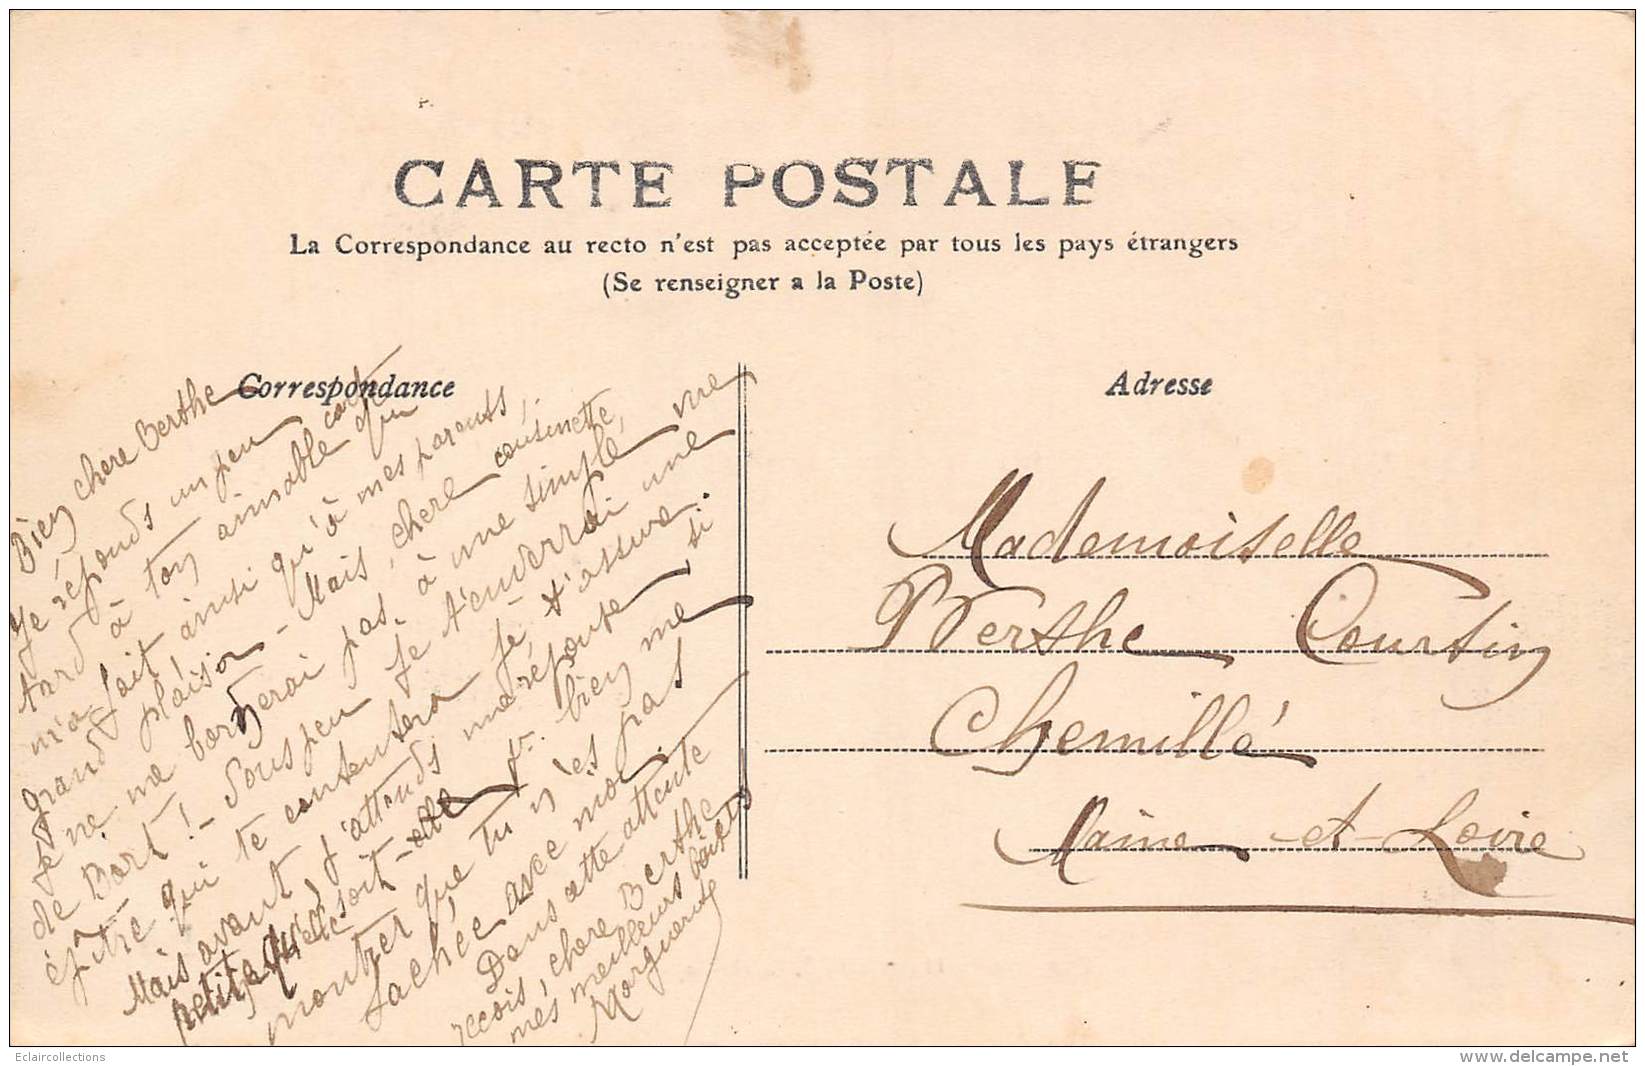 CARTE POSTALE
La Correspondance au recto n'est pas acceptée par tous les pays étrangers
(Se renseigner a la Poste)
Correspondance
Adresse
Bien chere Berthe
Je réponds un peu
tard à ton aimable carte
m'a fait ainsi qu'à mes parents, qui
grand plaisir - Mais, chere cousinette,
je ne me bornerai pas, à une simple vue
de Bort ! - Sous peu je t'enverrai une
épitre qui te contentera je t'assure.
Mais avant j'attends une réponse, si
petite qu'elle soit-elle pr. bien me
montrer que tu n'es pas
fachée avec moi.
Dans cette attente
recois, chere Berthe
mes meilleurs baisers
Marguerite
Mademoiselle
Berthe Courtin
Chemillé
Maine-et-Loire
Eclaircollections
www.delcampe.net